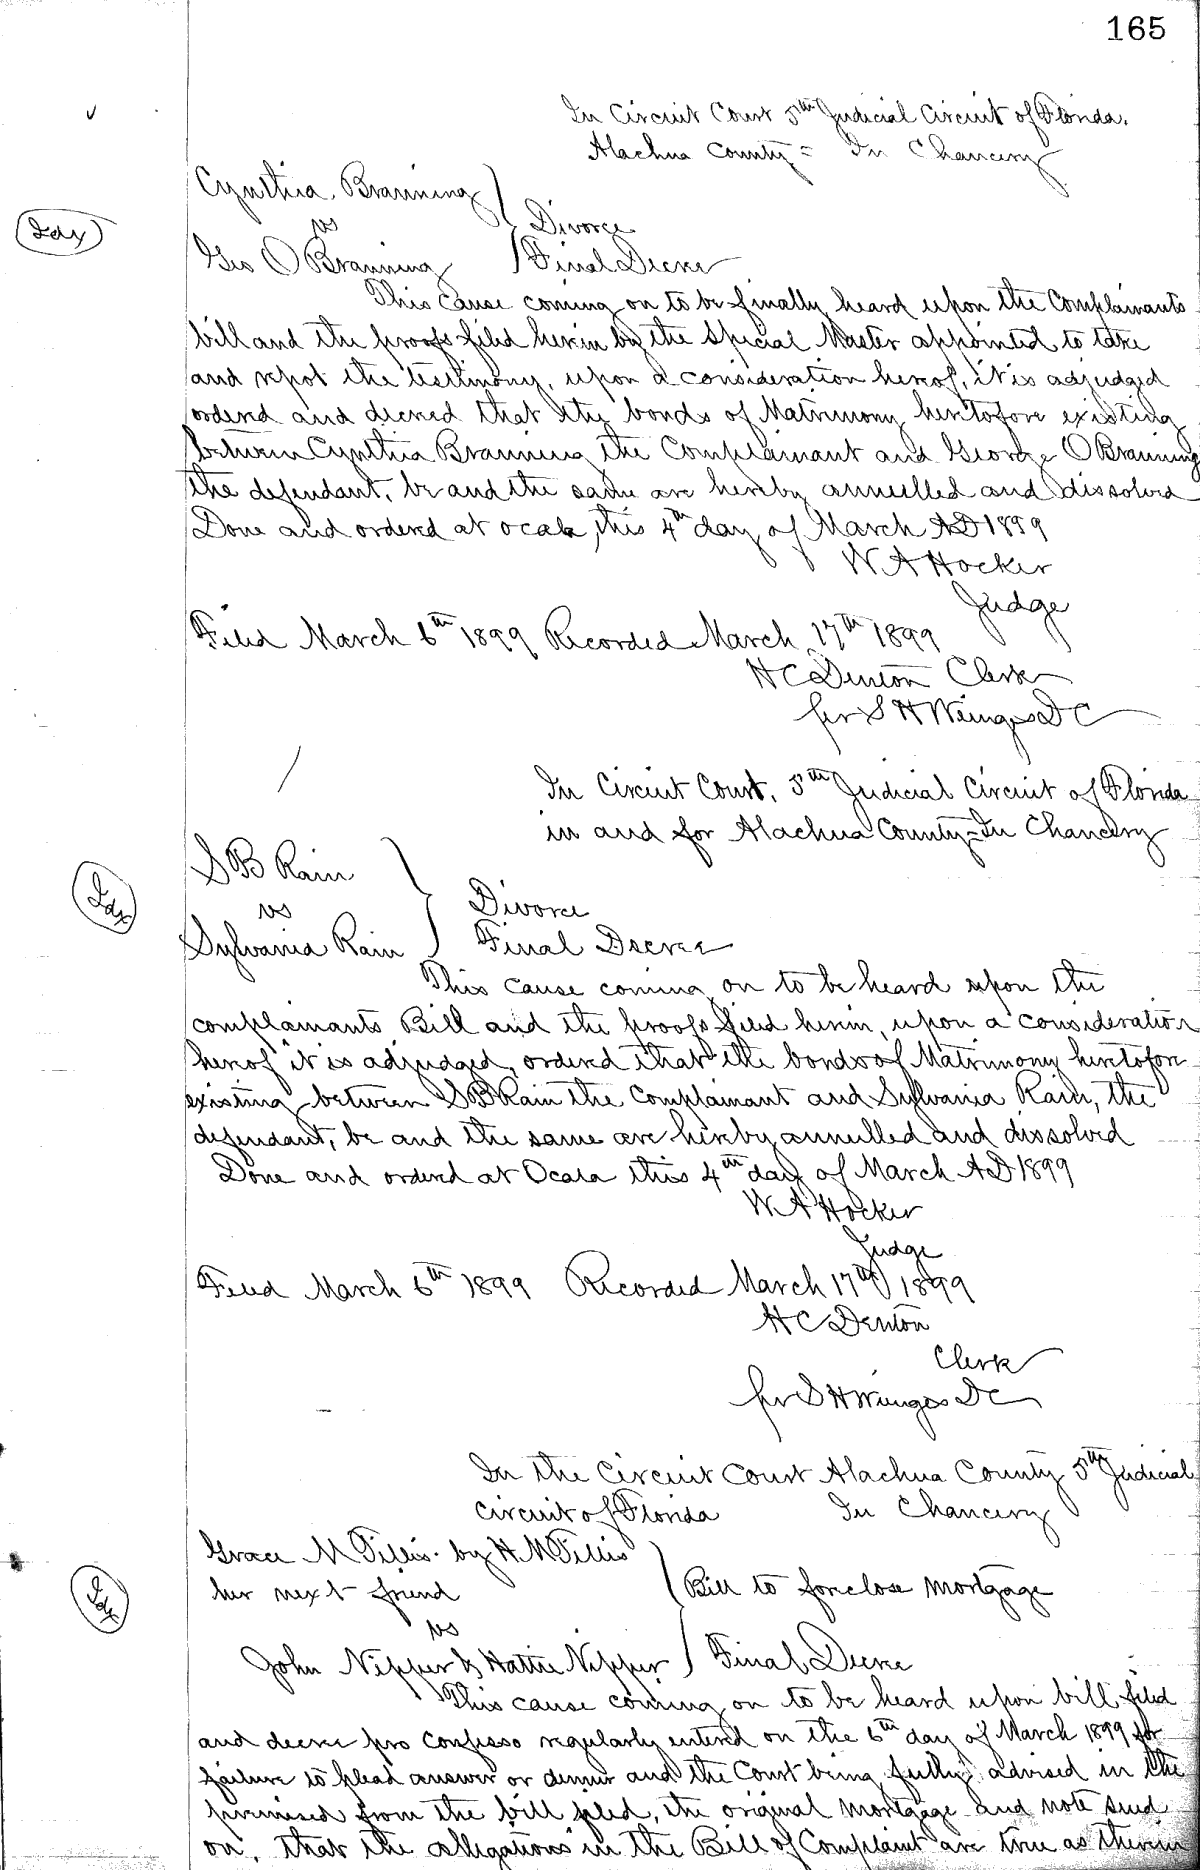 165
In Circuit Court 5th Judicial Circuit of Florida.
Alachua County = In Chancery
Cynthia Branning
vs
Divorce
Idx
Geo O Branning
Final Decree
This cause coming on to be finally heard upon the Complainants
bill and the proofs filed herein by the Special Master appointed to take
and repot the testimony, upon a consideration hereof, it is adjudged
ordered and decreed that the bonds of Matrimony heretofore existing
between Cynthia Branning the Complainant and George O Branning
the defendant, be and the same are hereby annulled and dissolved
Done and ordered at Ocala, this 4th day of March AD 1899
W A Hocker
Judge
Filed March 6th 1899 Recorded March 17th 1899
H C Denton Clerk
per S H Wienges D C
In Circuit Court, 5th Judicial Circuit of Florida
in and for Alachua County = In Chancery
S B Rain
Idx
vs
Divorce
Sylvania Rain
Final Decree
This cause coming on to be heard upon the
complainants Bill and the proofs filed herein, upon a consideration
hereof it is adjudged, ordered that the bonds of Matrimony heretofore
existing between S B Rain the Complainant and Sylvania Rain, the
defendant, be and the same are hereby annulled and dissolved
Done and ordered at Ocala this 4th day of March AD 1899
W A Hocker
Judge
Filed March 6th 1899 Recorded March 17th 1899
H C Denton
Clerk
per S H Wienges D C
In the Circuit Court Alachua County 5th Judicial
Circuit of Florida In Chancery
Grace M Tillis. by H M Tillis
her next friend
Bill to foreclose mortgage
Idx
vs
John Nipper & Hattie Nipper
Final Decree
This cause coming on to be heard upon bill filed
and decree pro confesso regularly entered on the 6th day of March 1899 for
failure to plead answer or demur and the Court being fully advised in the
premises from the bill filed, the original mortgage and note sued
on, that the allegations in the Bill of Complaint are true as therein